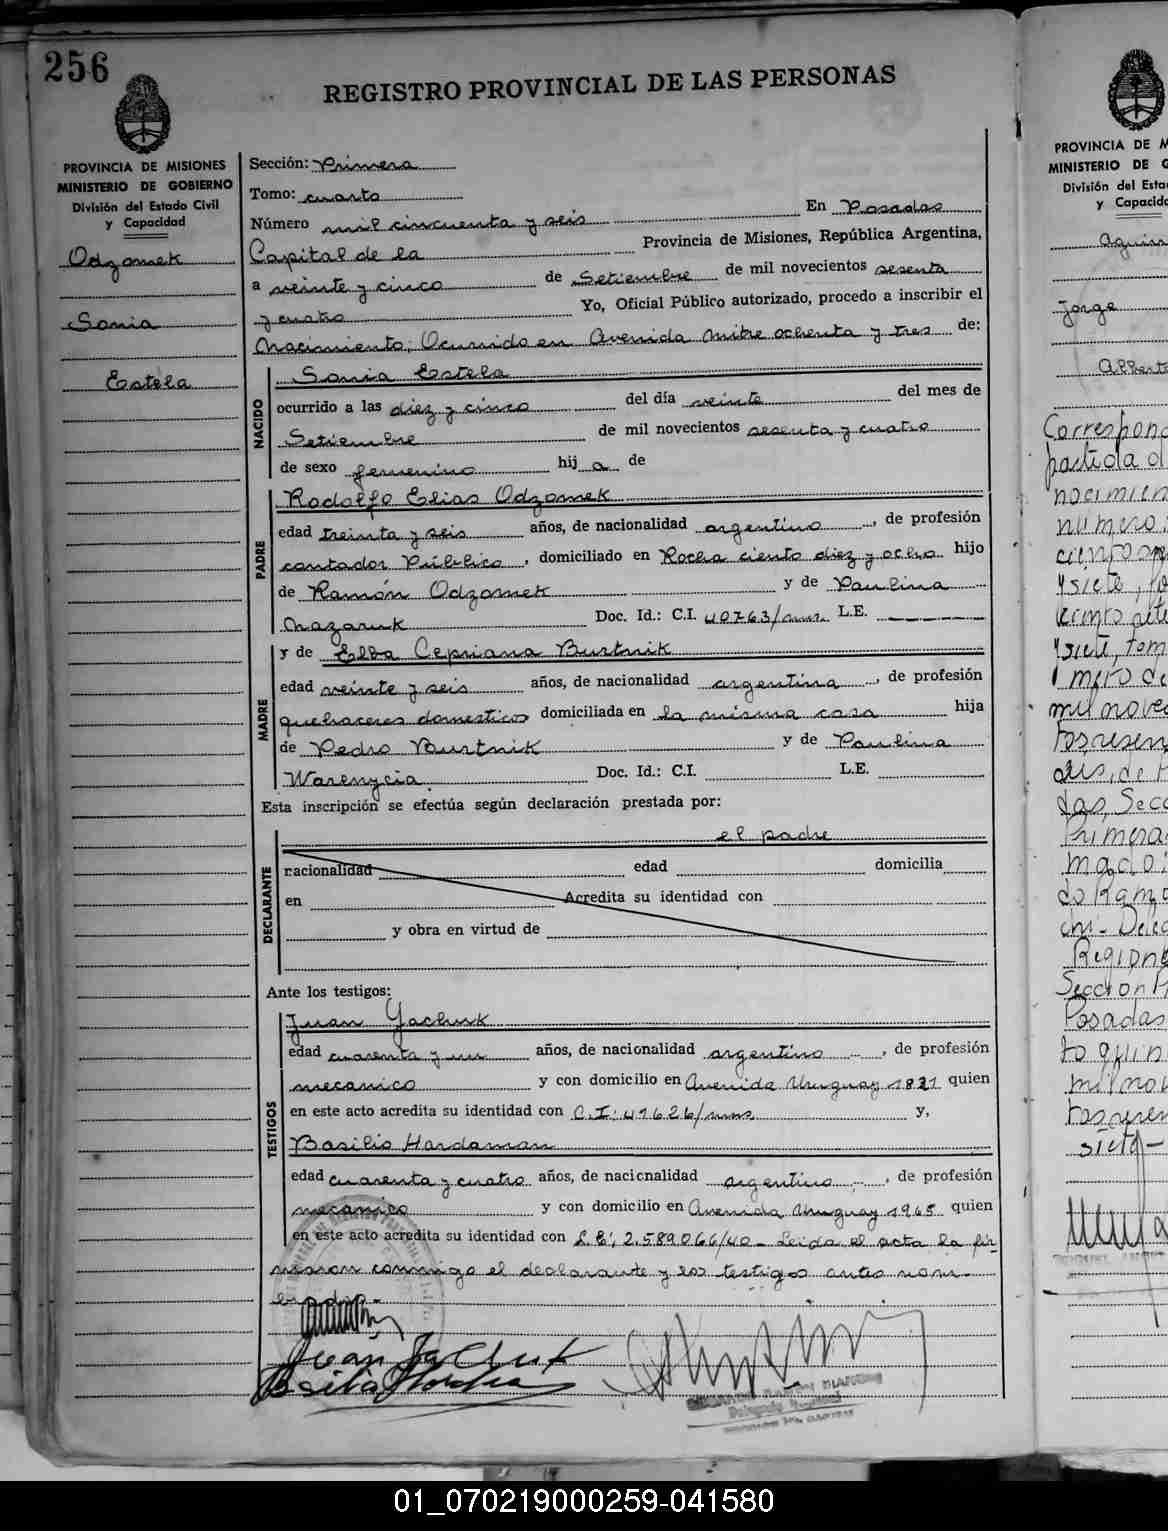 256
REGISTRO PROVINCIAL DE LAS PERSONAS
PROVINCIA DE MISIONES
MINISTERIO DE GOBIERNO
División del Estado Civil
y Capacidad
Odzomek
Sonia
Estela
Sección: Primera
Tomo: cuarto
Número mil cincuenta y seis En Posadas
Capital de la Provincia de Misiones, República Argentina,
a veinte y cinco de Setiembre de mil novecientos sesenta
y cuatro Yo, Oficial Público autorizado, procedo a inscribir el
Nacimiento; Ocurrido en Avenida Mitre ochenta y tres de:
NACIDO
Sonia Estela
ocurrido a las diez y cinco del día veinte del mes de
Setiembre de mil novecientos sesenta y cuatro
de sexo femenino hij a de
PADRE
Rodolfo Elias Odzomek
edad treinta y seis años, de nacionalidad argentino, de profesión
contador Público, domiciliado en Rocha ciento diez y ocho hijo
de Ramón Odzomek y de Paulina
Nazaruk Doc. Id.: C.I. 40763/mns. L.E.
MADRE
y de Elba Cepriana Burtnik
edad veinte y seis años, de nacionalidad argentina, de profesión
quehaceres domesticos domiciliada en la misma casa hija
de Pedro Burtnik y de Paulina
Warenycia. Doc. Id.: C.I. L.E.
Esta inscripción se efectúa según declaración prestada por:
DECLARANTE
el padre
nacionalidad edad domicilia
en Acredita su identidad con
y obra en virtud de
Ante los testigos:
TESTIGOS
Juan Yachuk
edad cuarenta y un años, de nacionalidad argentino, de profesión
mecanico y con domicilio en Avenida Uruguay 1821 quien
en este acto acredita su identidad con C.I: 41626/mns. y,
Basilio Hardaman
edad cuarenta y cuatro años, de nacionalidad argentino, de profesión
mecanico y con domicilio en Avenida Uruguay 1965 quien
en este acto acredita su identidad con L.E; 2.589.066/40_ Leida el acta la fir-
maron conmigo el declarante y los testigos antes nom-
Juan Yachuk
Delegado Regional
PROVINCIA DE M
MINISTERIO DE G
División del Esta
y Capacida
Jorge
Alberto
Correspond
partida d
nacimien
número
ysiete
ysiete, tom
mil nove
das, Secc
Primera
Region
Seccion P
Posadas
mil nov
siete-
01_070219000259-041580